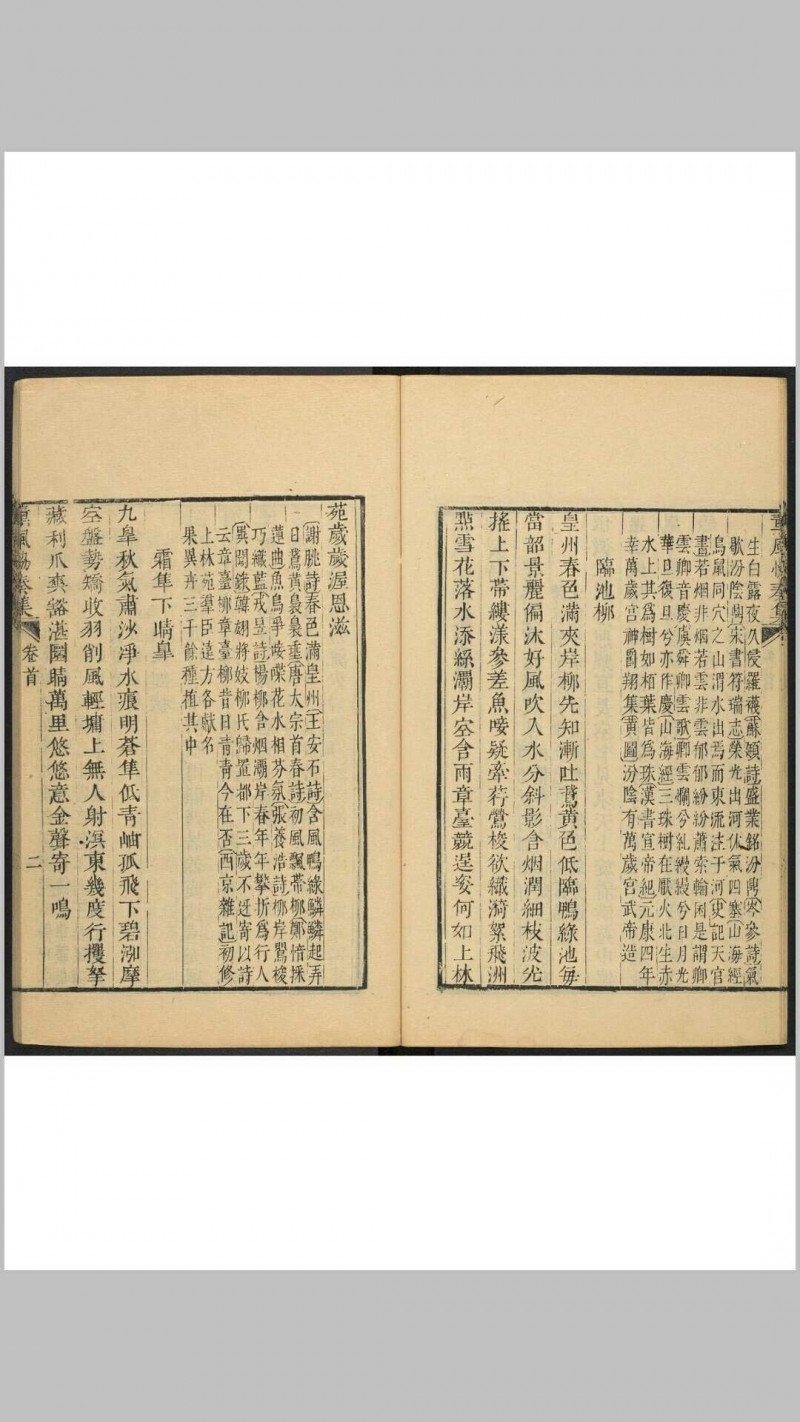 生白露夜久侵羅襪蘇頲詩盛業銘汾鼎岑參詩氣
歇汾陰鼎宋書符瑞志榮光出河休氣四塞山海經
鳥鼠同穴之山渭水出焉而東流注于河史記天官
書若烟非烟若雲非雲郁郁紛紛蕭索輪囷是謂卿
雲卿音慶虞舜卿雲歌卿雲爛兮糺縵縵兮日月光
華旦復旦兮亦作慶山海經三珠樹在厭火北生赤
水上其爲樹如栢葉皆爲珠漢書宣帝紀元康四年
幸萬歲宮神爵翔集黃圖汾陰有萬歲宮武帝造
臨池柳
皇州春色滿夾岸柳先知漸吐鵞黃色低臨鴨綠池毎
當韶景麗偏沐好風吹入水分斜影含烟潤細枝波光
搖上下帶縷漾參差魚唼疑牽荇鶯梭欲織漪絮飛洲
㸃雪花落水添絲灞岸空含雨章臺競逞姿何如上林
苑歲歲渥恩滋
謝朓詩春色滿皇州王安石詩含風鴨綠鱗鱗起弄
日鵞黃裊裊垂唐太宗首春詩初風飄帶柳鄭愔採
蓮曲魚鳥爭唼喋花水相芬氛張養浩詩柳岸鶯梭
巧織藍戎昱詩楊柳含烟灞岸春年年攀折爲行人
異聞錄韓翃將妓柳氏歸置都下三歲不迓寄以詩
云章臺柳章臺柳昔日靑靑今在否西京雜記初修
上林苑羣臣遠方各獻名
果異卉三千餘種植其中
霜隼下晴皐
九皐秋氣肅沙凈水痕明蒼隼低靑岫孤飛下碧泓摩
空盤勢矯收羽削風輕墉上無人射溟東幾度行攫拏
藏利爪爽豁湛圓睛萬里悠悠意金聲寄一鳴
卷首
二